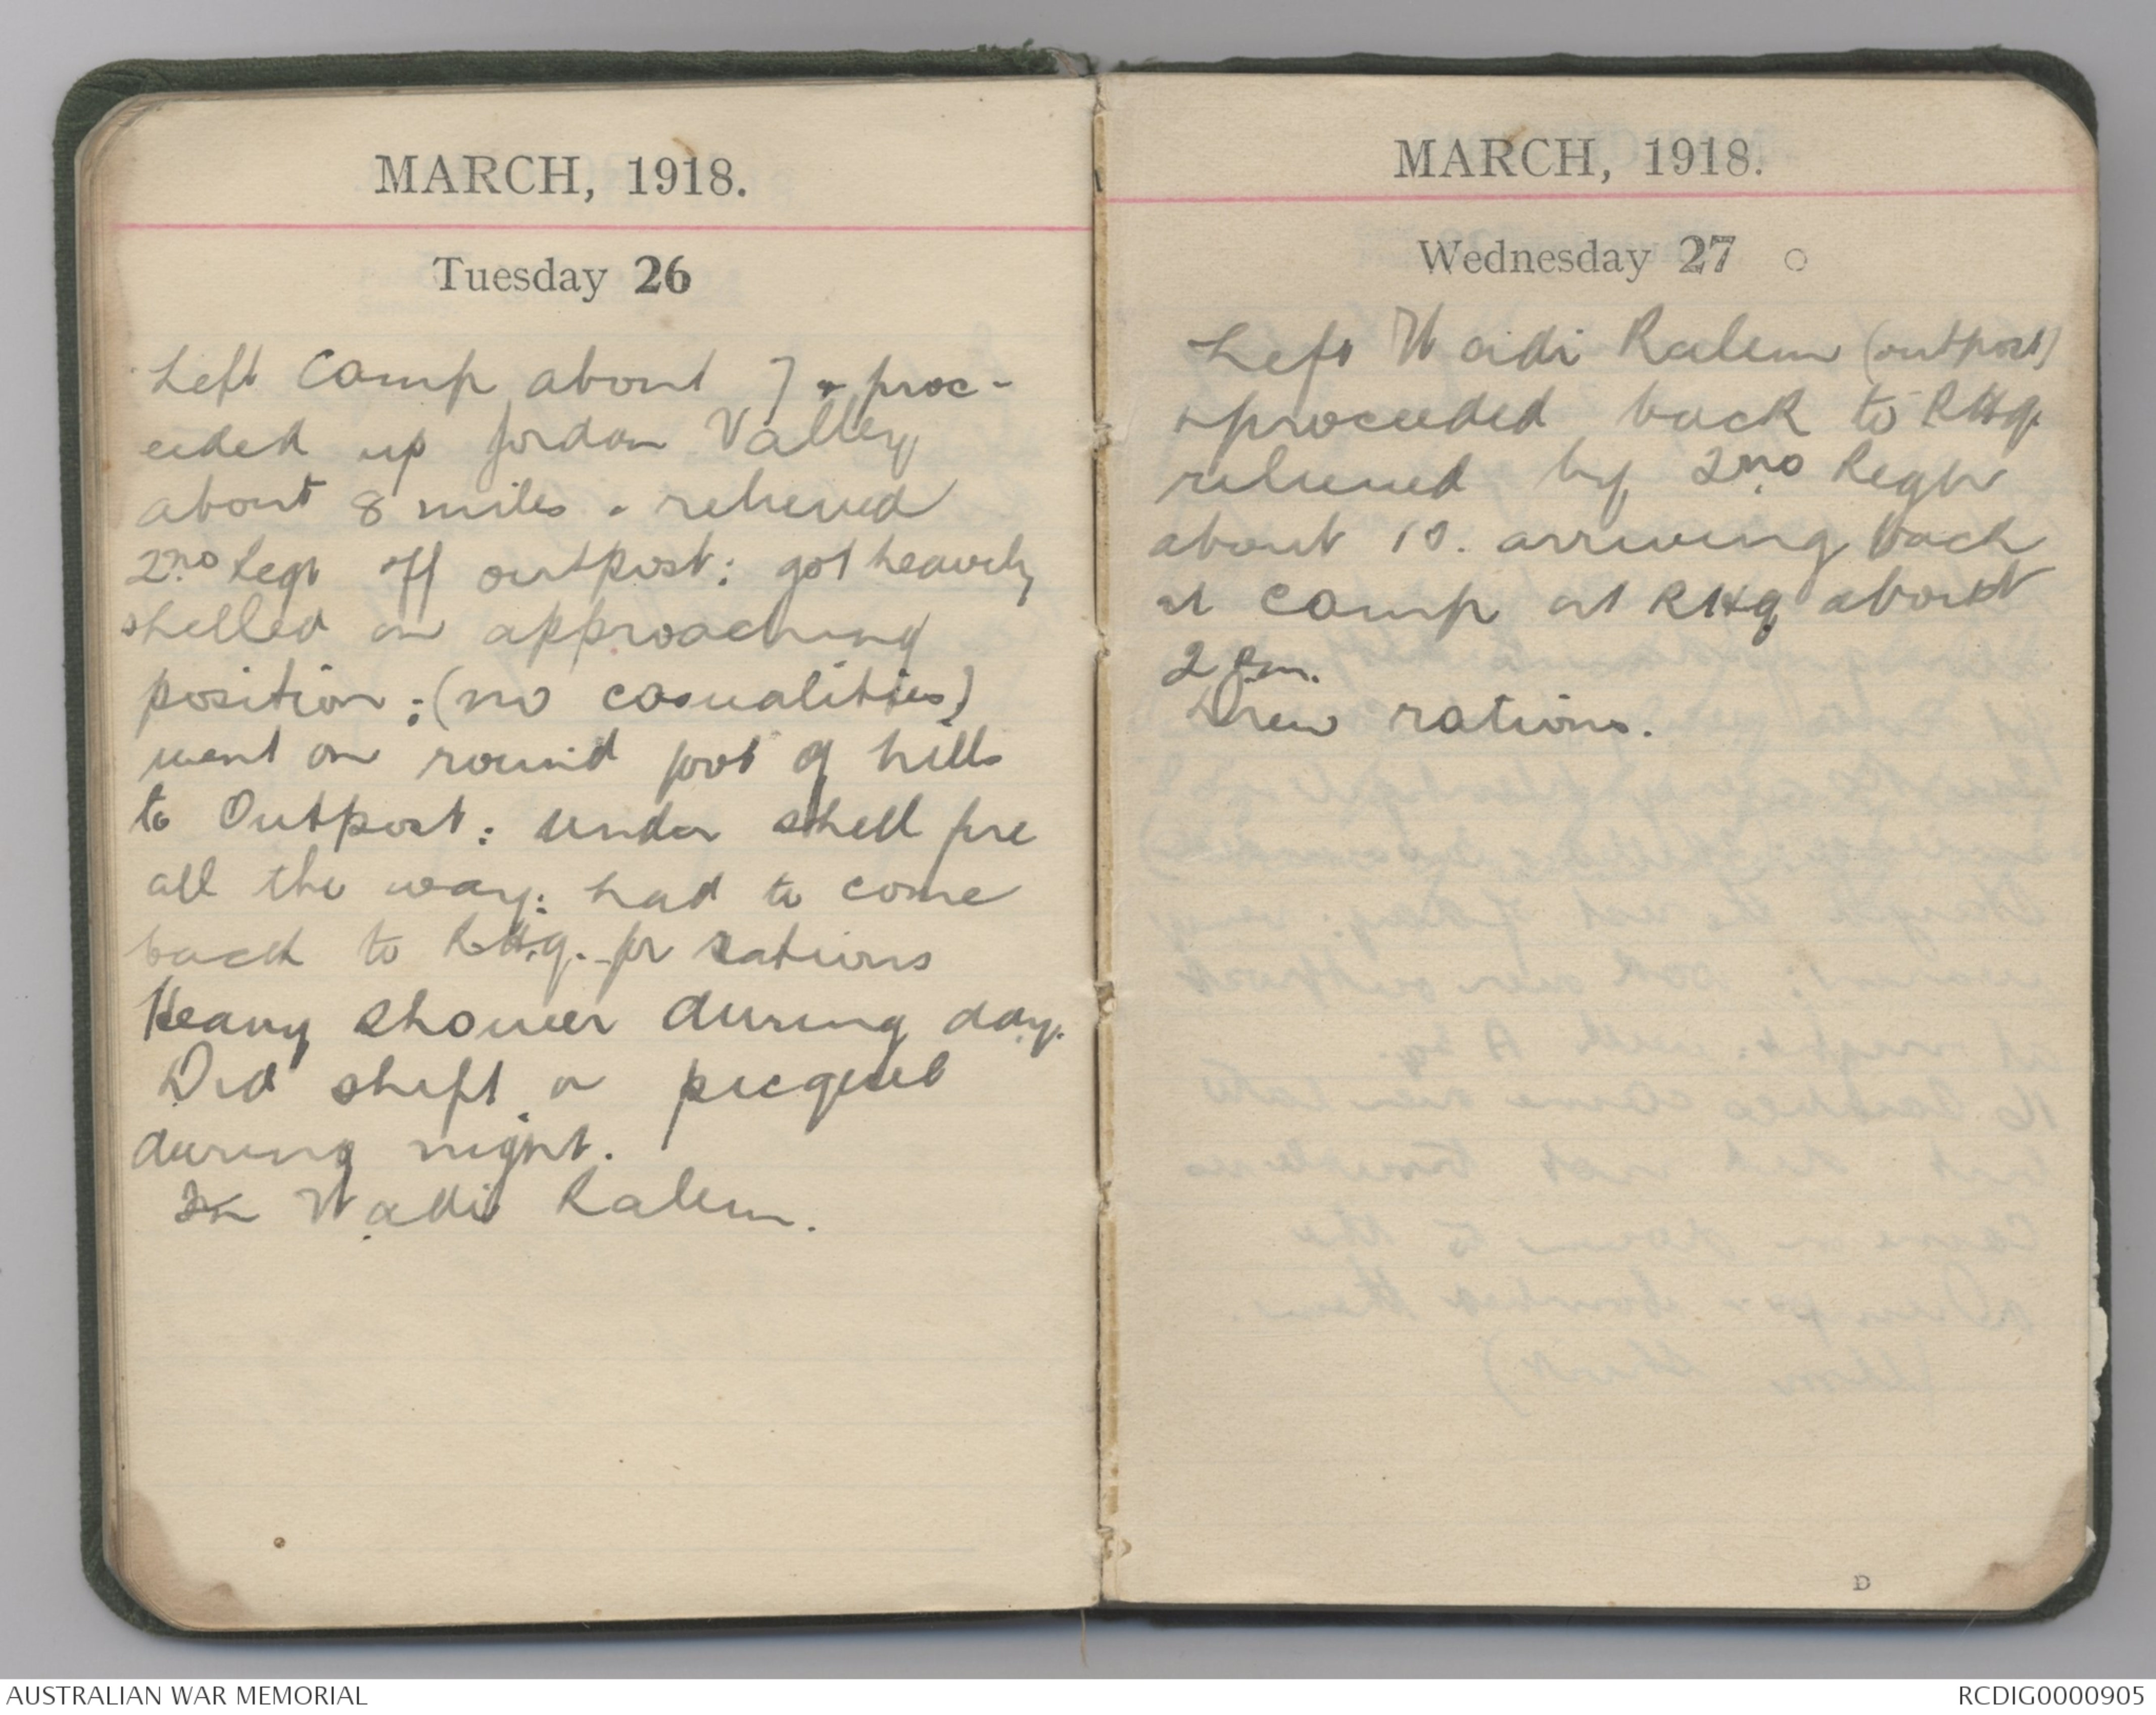 MARCH, 1918.
Tuesday 26
Left Camp about 7 & proc-
eeded up Jordan Valley
about 8 miles & relieved
2nd Regt off outpost: got heavily
shelled on approaching
position: (no casualities)
went on round foot of hills
to Outpost: under shell fire
all the way: had to come
back to RHq. for rations
Heavy shower during day.
Did shift on picquet
during night.
In Wadi Ralem.
MARCH, 1918.
Wednesday 27
Left Waidi Ralem (outpost)
& proceeded back to RHq.
relieved by 2nd Regt
about 10. arriving back
at camp at RHq about
2 p.m.
Drew rations.
D
AUSTRALIAN WAR MEMORIAL
RCDIG0000905